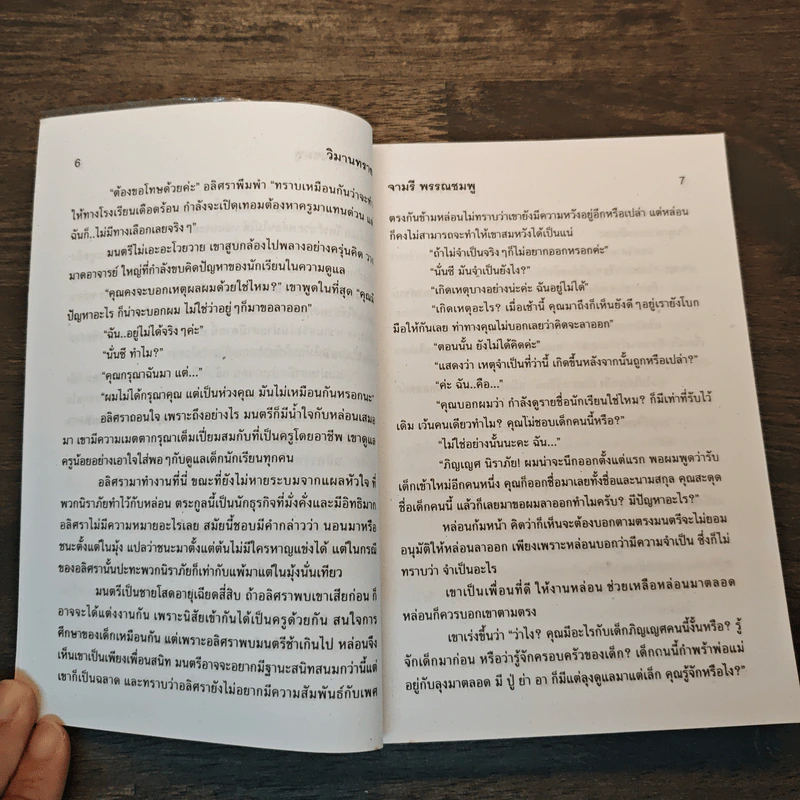 6
วิมานทราย
"ต้องขอโทษด้วยค่ะ" อลิศราพึมพำ "ทราบเหมือนกันว่าจะทำ
ให้ทางโรงเรียนเดือดร้อน กำลังจะเปิดเทอมต้องหาครูมาแทนด่วน แต่
ฉันก็..ไม่มีทางเลือกเลยจริงๆ"
มนตรีไม่เอะอะโวยวาย เขาสูบกล้องไปพลางอย่างครุ่นคิด
มาดอาจารย์ ใหญ่ที่กำลังขบคิดปัญหาของนักเรียนในความดูแล
"คุณคงจะบอกเหตุผลผมด้วยใช่ไหม?" เขาพูดในที่สุด "คุณมี
ปัญหาอะไร ก็น่าจะบอกผม ไม่ใช่ว่าอยู่ๆก็มาขอลาออก"
"ฉัน..อยู่ไม่ได้จริงๆค่ะ"
"นั่นซี ทำไม?"
"คุณกรุณาฉันมา แต่..."
"ผมไม่ได้กรุณาคุณ แต่เป็นห่วงคุณ มันไม่เหมือนกันหรอกนะ"
อลิศราถอนใจ เพราะถึงอย่างไร มนตรีก็มีน้ำใจกับหล่อนเสมอ
มา เขามีความเมตตากรุณาเต็มเปี่ยมสมกับที่เป็นครูโดยอาชีพ เขาดูแล
ครูน้อยอย่างเอาใจใส่พอๆกับดูแลเด็กนักเรียนทุกคน
อลิศรามาทำงานที่นี่ ขณะที่ยังไม่หายระบมจากแผลหัวใจ ที่
พวกนิราภัยทำไว้กับหล่อน ตระกูลนี้เป็นนักธุรกิจที่มั่งคั่งและมีอิทธิมาก
อลิศราไม่มีความหมายอะไรเลย สมัยนี้ชอบมีคำกล่าวว่า นอนมาหรือ
ชนะตั้งแต่ในมุ้ง แปลว่าชนะมาตั้งแต่ต้นไม่มีใครหาญแข่งได้ แต่ในกรณี
ของอลิศรานั้นปะทะพวกนิราภัยก็เท่ากับแพ้มาแต่ในมุ้งนั่นเทียว
มนตรีเป็นชายโสดอายุเฉียดสี่สิบ ถ้าอลิศราพบเขาเสียก่อน ก็
อาจจะได้แต่งงานกัน เพราะนิสัยเข้ากันได้เป็นครูด้วยกัน สนใจการ
ศึกษาของเด็กเหมือนกัน แต่เพราะอลิศราพบมนตรีช้าเกินไป หล่อนจึง
เห็นเขาเป็นเพียงเพื่อนสนิท มนตรีอาจจะอยากมีฐานะสนิทสนมกว่านี้แต่
เขาก็เป็นฉลาด และทราบว่าอลิศรายังไม่อยากมีความสัมพันธ์กับเพศ
จามรี พรรณชมพู
7
ตรงกันข้ามหล่อนไม่ทราบว่าเขายังมีความหวังอยู่อีกหรือเปล่า แต่หล่อน
ก็คงไม่สามารถจะทำให้เขาสมหวังได้เป็นแน่
"ถ้าไม่จำเป็นจริงๆก็ไม่อยากออกหรอกค่ะ"
"นั่นซี มันจำเป็นยังไง?"
"เกิดเหตุบางอย่างน่ะค่ะ ฉันอยู่ไม่ได้"
"เกิดเหตุอะไร? เมื่อเช้านี้ คุณมาถึงก็เห็นยังดีๆอยู่เรายังโบก
มือให้กันเลย ท่าทางคุณไม่บอกเลยว่าคิดจะลาออก"
"ตอนนั้น ยังไม่ได้คิดค่ะ"
"แสดงว่า เหตุจำเป็นที่ว่านี้ เกิดขึ้นหลังจากนั้นถูกหรือเปล่า?"
"ค่ะ ฉัน..คือ..."
"คุณบอกผมว่า กำลังดูรายชื่อนักเรียนใช่ไหม? ก็มีเท่าที่รับไว้
เดิม เว้นคนเดียวทำไม? คุณไม่ชอบเด็กคนนี้หรือ?"
"ไม่ใช่อย่างนั้นนะคะ ฉัน..."
"ภิญเญศ นิราภัย! ผมน่าจะนึกออกตั้งแต่แรก พอผมพูดว่ารับ
เด็กเข้าใหม่อีกคนหนึ่ง คุณก็ออกชื่อมาเลยทั้งชื่อและนามสกุล คุณสะดุด
ชื่อเด็กคนนี้ แล้วก็เลยมาขอผมลาออกทำไมครับ? มีปัญหาอะไร?"
หล่อนก้มหน้า คิดว่าก็เห็นจะต้องบอกตามตรงมนตรีจะไม่ยอม
อนุมัติให้หล่อนลาออก เพียงเพราะหล่อนบอกว่ามีความจำเป็น ซึ่งก็ไม่
ทราบว่า จำเป็นอะไร
เขาเป็นเพื่อนที่ดี ให้งานหล่อน ช่วยเหลือหล่อนมาตลอด
หล่อนก็ควรบอกเขาตามตรง
เขาเร่งขึ้นว่า "ว่าไง? คุณมีอะไรกับเด็กภิญเญศคนนี้งั้นหรือ? รู้
จักเด็กมาก่อน หรือว่ารู้จักครอบครัวของเด็ก? เด็กถนนี้กำพร้าพ่อแม่
อยู่กับลุงมาตลอด มี ปู่ ย่า อา ก็มีแต่ลุงดูแลมาแต่เล็ก คุณรู้จักหรือไง?"